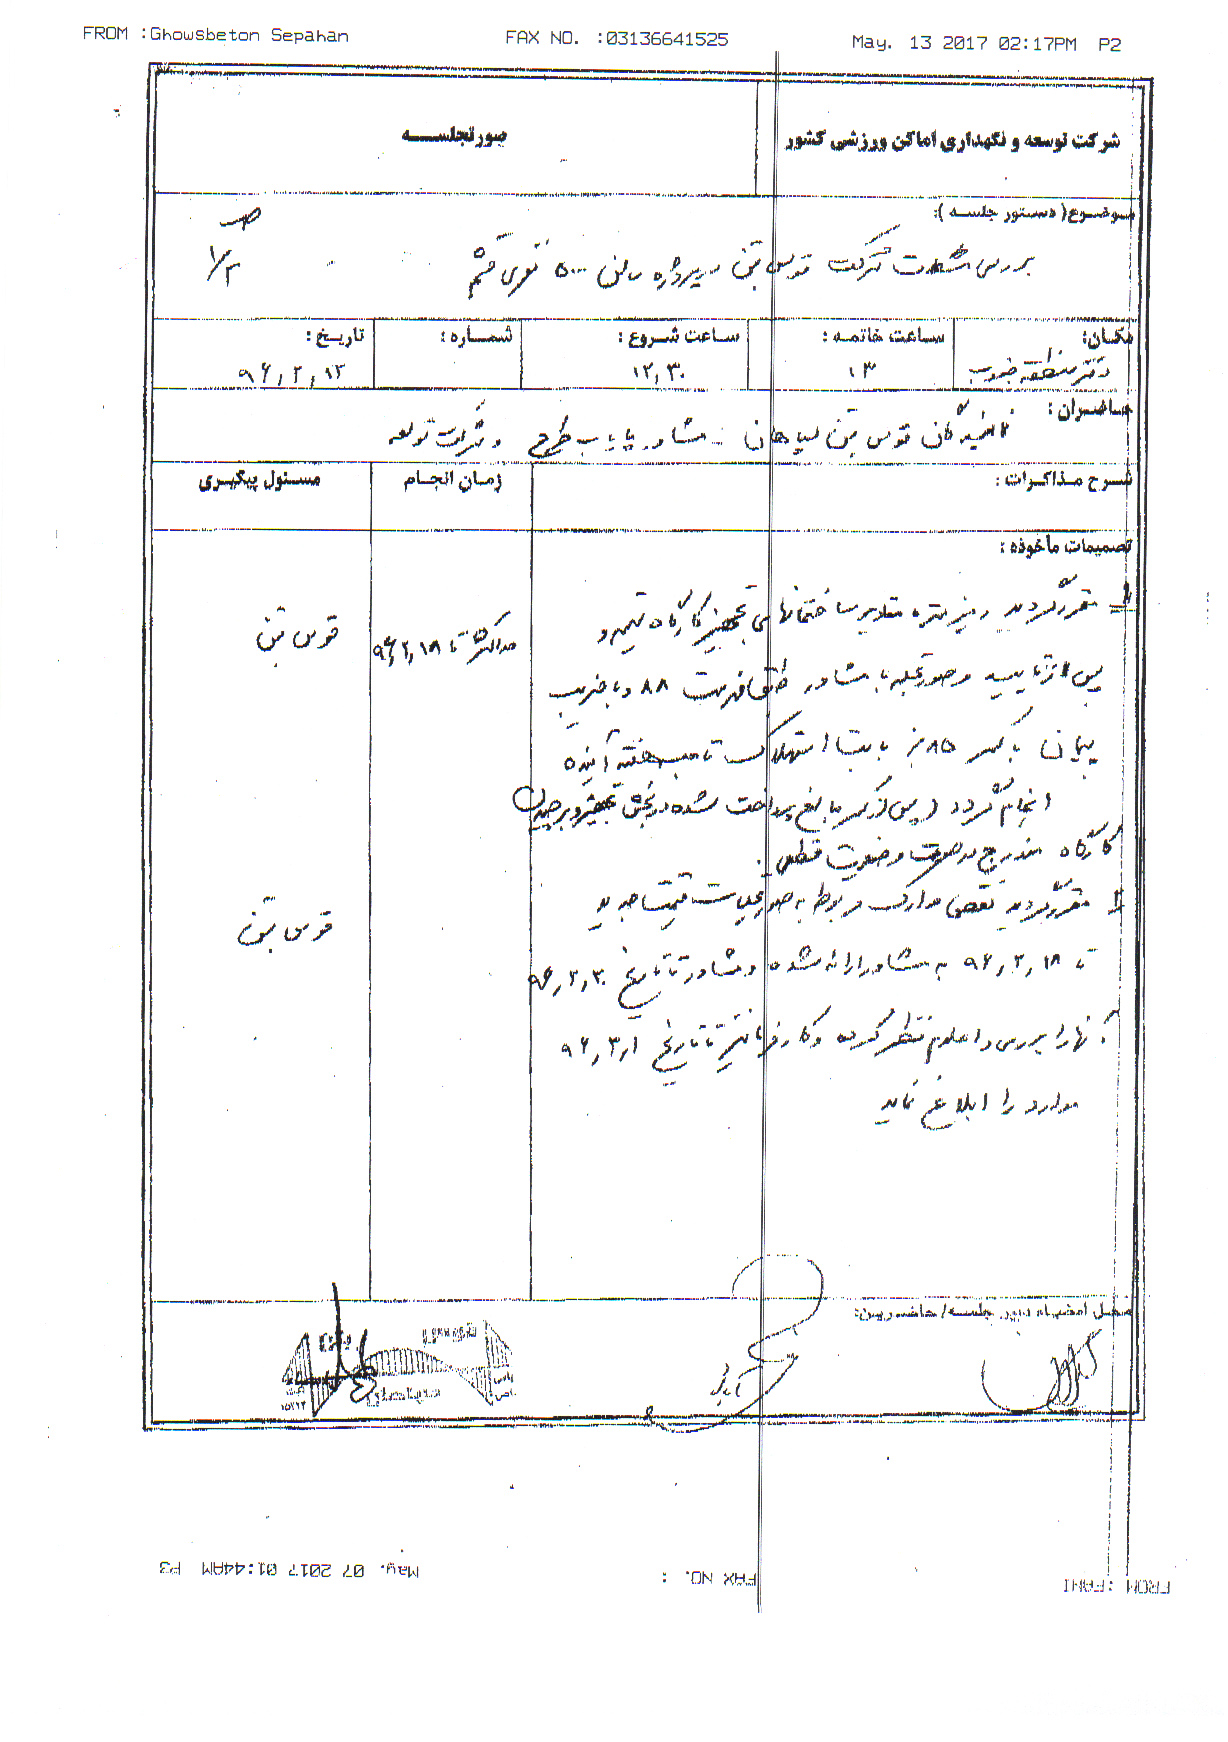 FROM :Ghowsbeton Sepahan FAX NO. :03136641525 May. 13 2017 02:17PM P2
شرکت توسعه و نگهداری اماکن ورزشی کشور
صورتجلسه
موضوع( دستور جلسه ):
بررسی مشکلات شرکت قوس بتن در پروژه سالن ۵۰۰۰ نفری قشم
ص ۱/۲
مکان: ساعت خاتمه : ساعت شروع : شماره : تاریخ :
دفتر منطقه جنوب ۱۳ ۱۲,۳۰ ۹۶,۲,۱۲
حاضران :
نمایندگان قوس بتن سپاهان - مشاور پایاب طرح و شرکت توسعه
شرح مذاکرات : زمان انجام مسئول پیگیری
تصمیمات ماخوذه :
۱- مقرر گردید ریز متره مقادیر ساختمانهای تجهیز کارگاه تهیه و حداکثر تا ۹۶,۲,۱۸ قوس بتن
پس از تایید و صورتجلسه با مشاور طبق فهرست ۸۸ و با ضریب
پیمان با کسر ۸۵٪ بابت استهلاک تا هفته آینده
انجام گردد (پس از کسر مبالغ پرداخت شده در بخش تجهیز و برچیدن
کارگاه مندرج در صورت وضعیت قطعی.
۲- مقرر گردید نقص مدارک مربوط به صورتجلسات قیمت جدید قوس بتن
تا ۹۶,۲,۱۸ به مشاور ارائه شده و مشاور تا تاریخ ۹۶,۲,۳۰
آنها را بررسی و اعلام نظر کرده و کارفرما نیز تا تاریخ ۹۶,۳,۱
موارد را ابلاغ نماید
محل امضاء دبیر جلسه/ حاضرین:
قوس
بتن
سپاهان
FROM :FANI FAX NO. : May. 07 2017 01:44AM P3